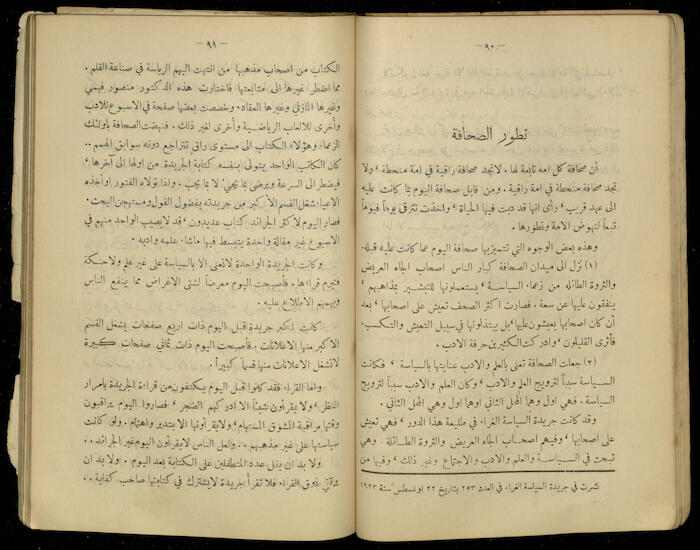 — ٩٠ —
تطور الصحافة
أن صحافة كل امة تابعة لها . لاتجد صحافة راقية في امة منحطة ، ولا
تجد صحافة منحطة في امة راقية . ومن قابل صحافة اليوم بما كانت عليه
الى عهد قريب ، رأى انها قد دبت فيها الحياة ، واخذت تترقى يوماً فيوماً
تبعاً لنهوض الامة وتطورها .
وهذه بعض الوجوه التي تتميز بها صحافة اليوم عما كانت عليه قبله.
(١) نزل الى ميدان الصحافة كبار الناس اصحاب الجاه العريض
والثروة الطائلة من زعماء السياسة ، يستعملونها للتبشير بمذاهبهم ،
ينفقون عليها عن سعة . فصارت اكثر الصحف تعيش على اصحابها ، بعد
أن كان اصحابها يعيشون عليها، بل يبتذلونها في سبيل التعيش والتكسب.
فأثرى القليلون ، وادركت الكثيرين حرفة الادب .
(٢) جعلت الصحافة تعنى بالعلم والادب عنايتها بالسياسة ، فكانت
السياسة سبباً لترويج العلم والادب ، وكان العلم والادب سبباً لترويج
السياسة . فهي اول وهما المحل الثاني اوهما اول وهي المحل الثاني .
وقد كانت جريدة السياسة الغراء في طليعة هذا الدور ، فهي تعيش
على اصحابها ، وفيهم اصحاب الجاه العريض والثروة الطائلة . وهي
تبحث في السياسة والعلم والادب والاجتماع وغير ذلك ، وفيها من
نشرت في جريدة السياسة الغراء في العدد ٢٥٣ بتاريخ ٢٢ اوغسطس سنة ١٩٢٣
— ٩١ —
الكتاب من اصحاب مذهبها من انتهت اليهم الرياسة في صناعة القلم .
مما اضطر غيرها الى متابعتها فاختارت هذه الدكتور منصور فهمي
وغيرها المازني وغيرها العقاد . وخصصت بعضها صفحة في الاسبوع للادب
وأخرى للالعاب الرياضية وأخرى لغير ذلك . فنهضت الصحافة بأولئك
الزعماء وهؤلاء الكتاب الى مستوى راق تتراجع دونه سوابق الهمم ..
كان الكاتب الواحد يتولى بنفسه كتابة الجريدة من اولها الى آخرها ،
فيضطر الى السرعة ويرضى بما يجيء لا بما يجب . واذا تولاه الفتور او اخذه
الاعياء شغل القسم الأكبر من جريدته بفضول القول ومستهجن البحث .
فصار اليوم لاكثر الجرائد كتاب عديدون ، قد لايصيب الواحد منهم في
الاسبوع غير مقالة واحدة يتبسط فيها ماشاء علمه وادبه .
وكانت الجريدة الواحدة لاتعنى الا بالسياسة على غير علم ولاحنكة
فتبرم قراءها . فأصبحت اليوم معرضاً لشتى الاغراض مما ينفع الناس
ويهمهم الاطلاع عليه .
كانت اكبر جريدة قبل اليوم ذات اربع صفحات يشغل القسم
الاكبر منها الاعلانات . فأصبحت اليوم ذات ثماني صفحات كبيرة
لاتشغل الاعلانات منها قسماً كبيراً .
واما القراء فقد كانوا قبل اليوم يكتفون من قراءة الجريدة بامرار
النظر ، ولا يقرأون شيئاً الا ادركهم الضجر ، فصاروا اليوم يراقبون
وقتها مراقبة المشوق المستهام ، ولا يقرأونها الا بتدبر واهتمام . ولو كانت
سياستها على غير مذهبهم .. ولعل الناس لايقرأون اليوم غير الجرائد ..
ولا بد ان يقل عدد المتطفلين على الكتابة بعد اليوم . ولا بد ان
يرتقي ذوق القراء فلا تقرأ جريدة لايشترك في كتابتها صاحب كفاية ..